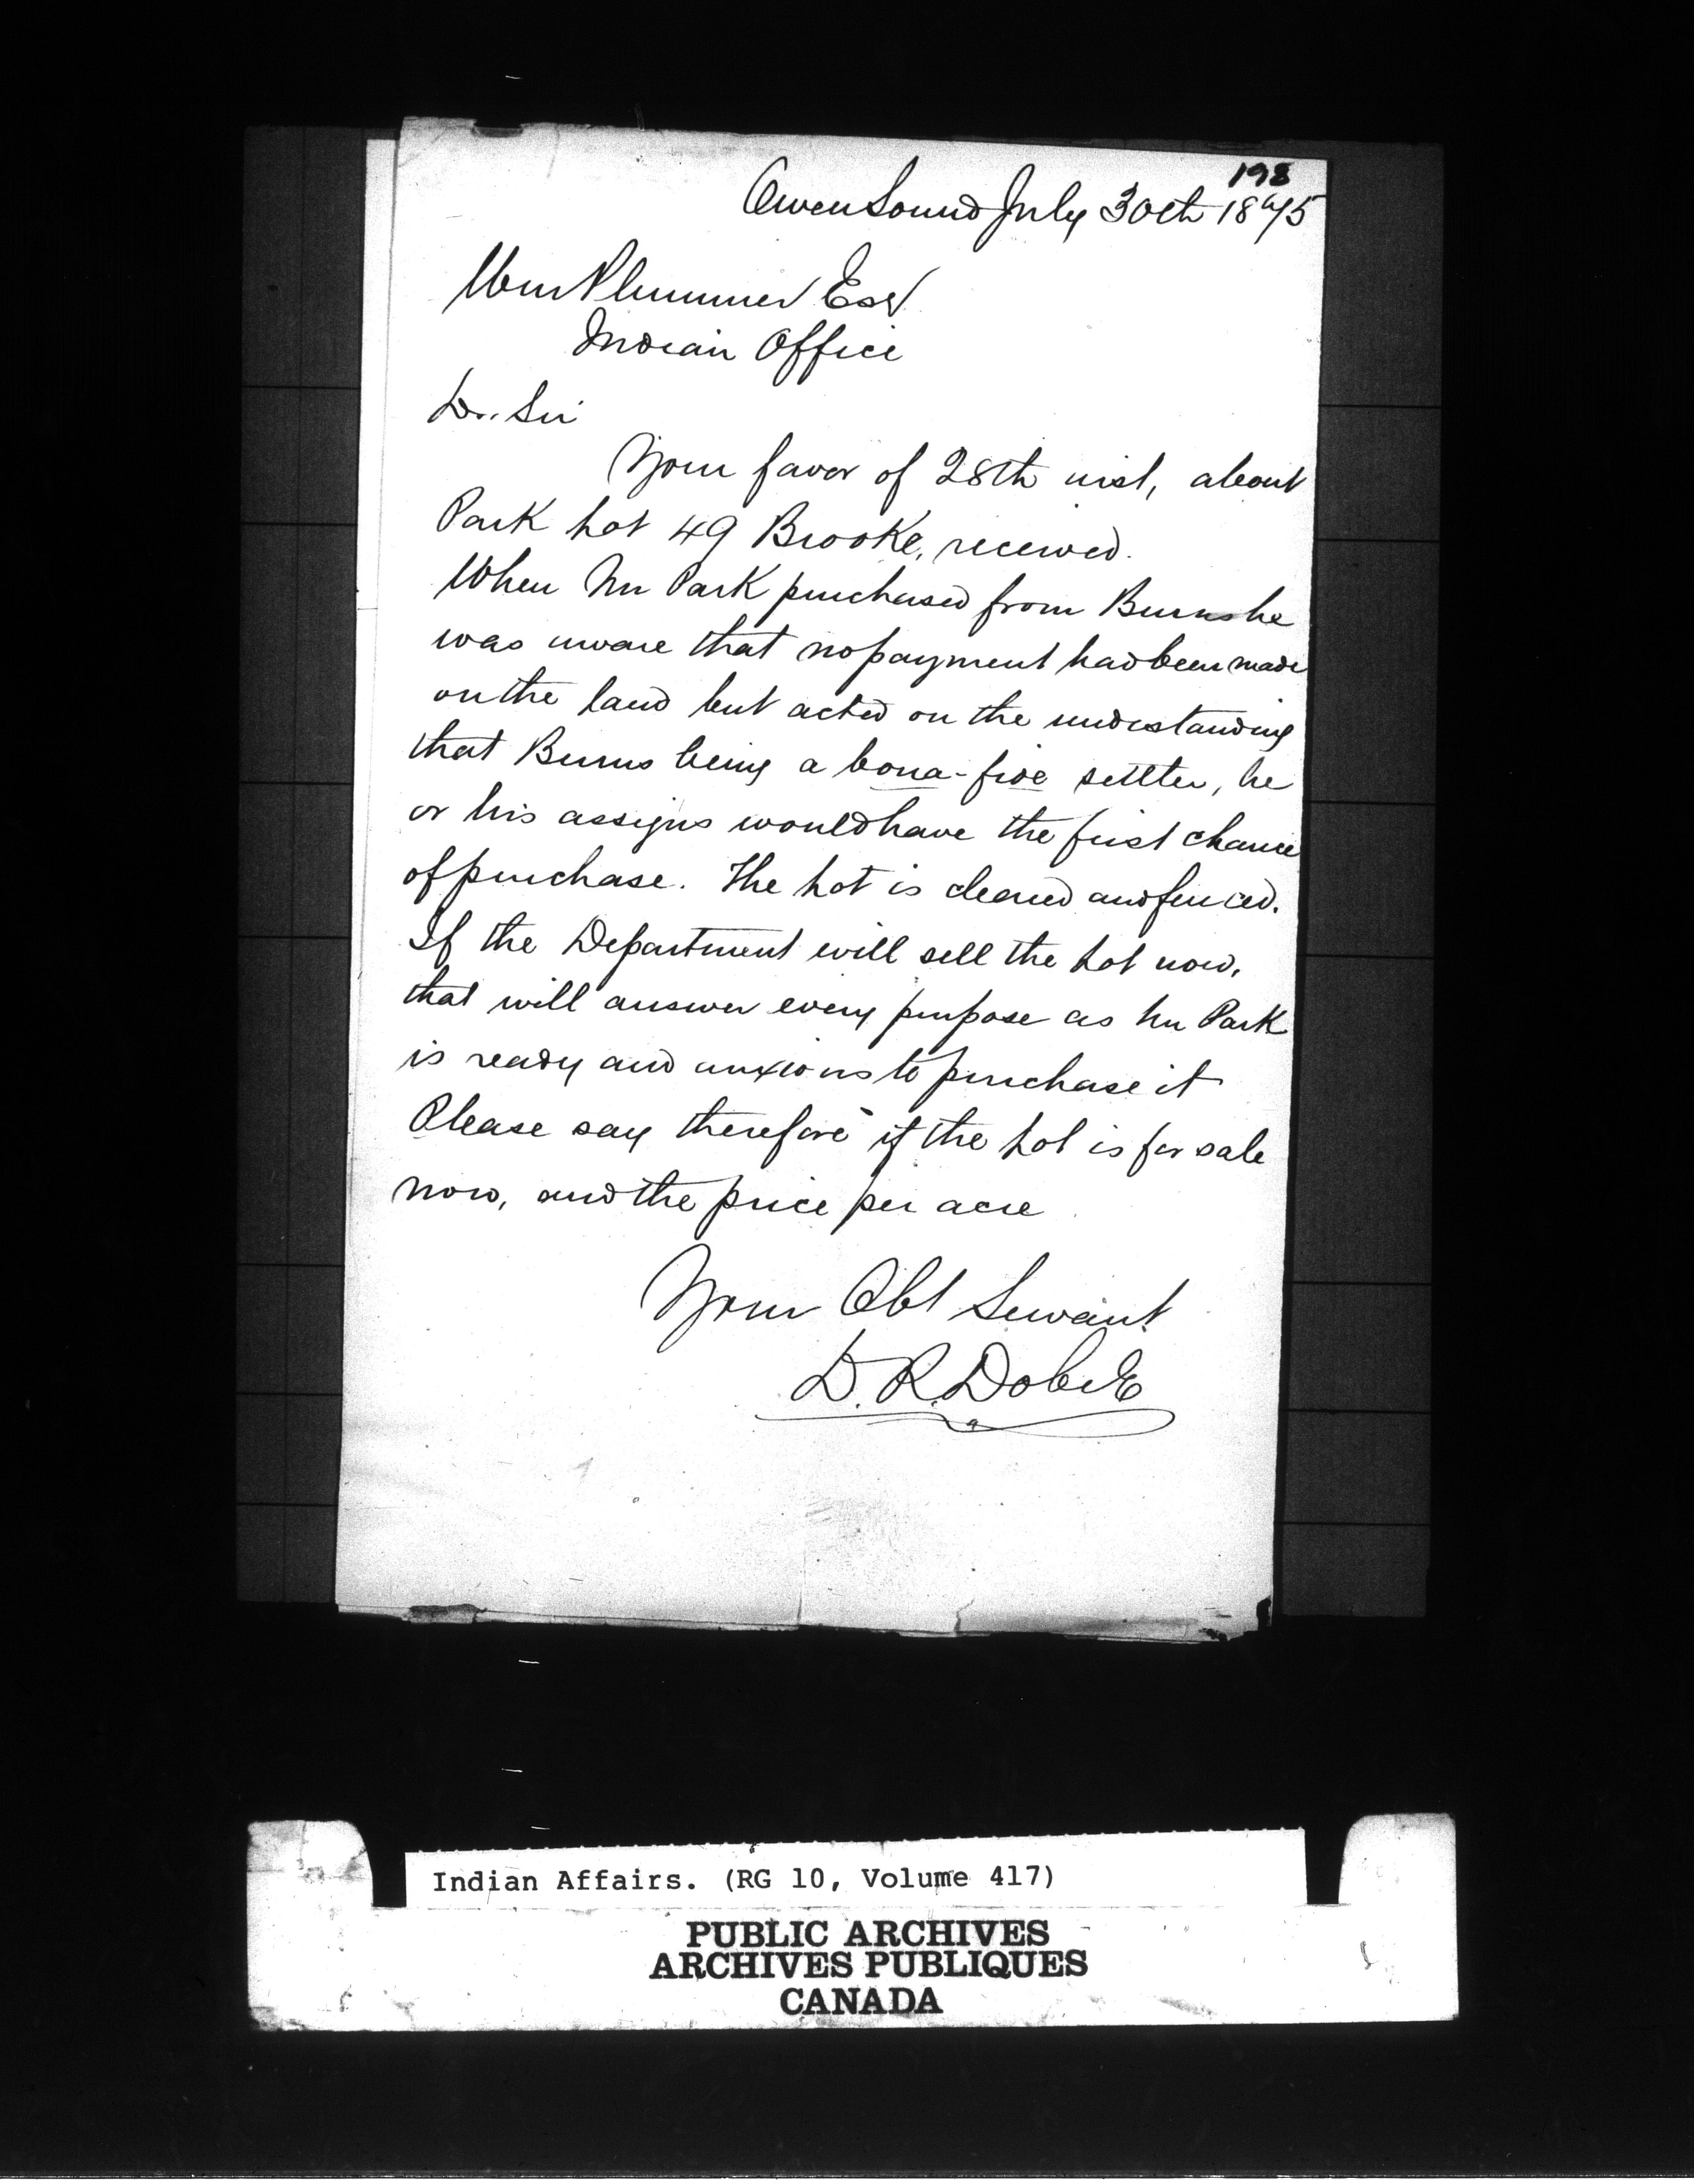 198
Owen Sound July 30th 1875
Wm Plummer Esq
Indian Office
Dr. Sir
Your favor of 28th inst, about
Park Lot 49 Brooke, received.
When Mr Park purchased from Burns he
was aware that no payment had been made
on the land but acted on the understanding
that Burns being a bona-fide settler, he
or his assigns would have the first chance
of purchase. The Lot is cleared and fenced.
If the Department will sell the Lot now,
that will answer every purpose as Mr Park
is ready and anxious to purchase it
Please say therefore if the Lot is for sale
now, and the price per acre
Your Obt Servant
D. R. Dobie
Indian Affairs. (RG 10, Volume 417)
PUBLIC ARCHIVES
ARCHIVES PUBLIQUES
CANADA